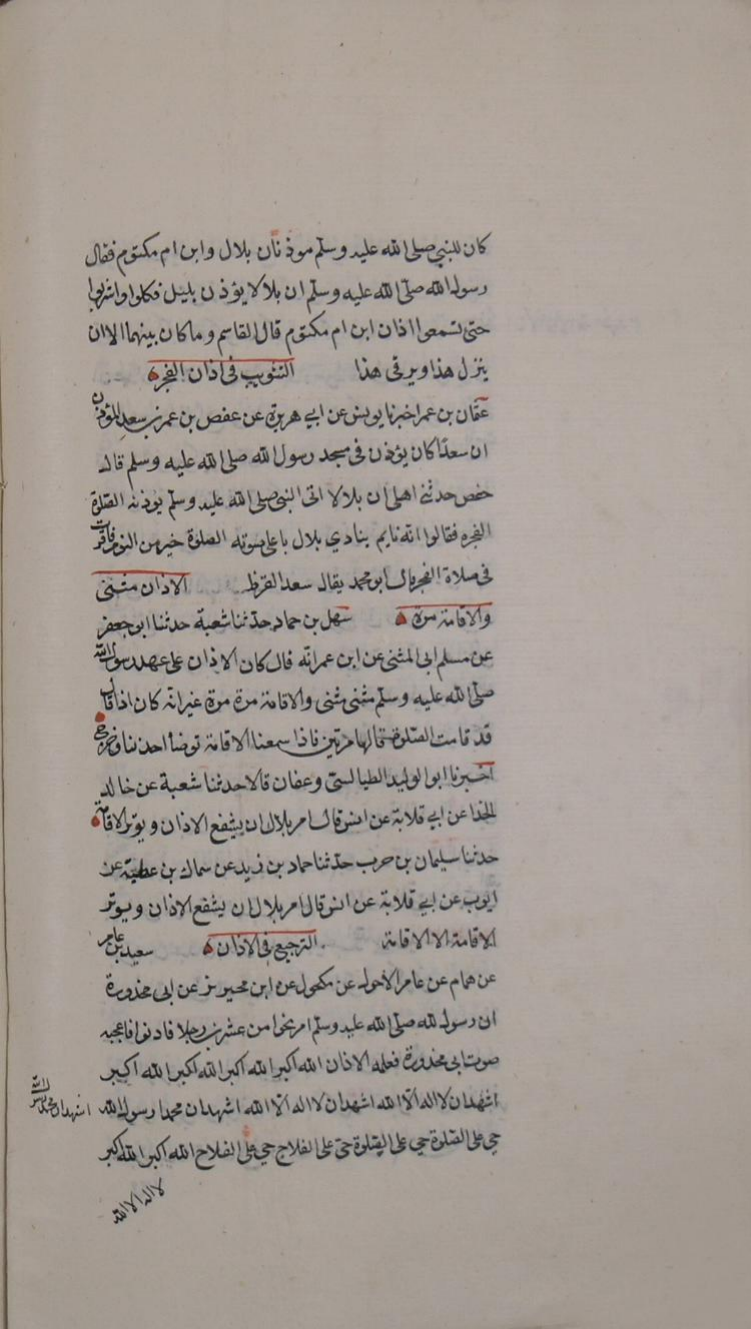 كان للنبي صلى الله عليه وسلم موذنان بلال وابن ام مكتوم فقال
رسول الله صلى الله عليه وسلم ان بلالا يؤذن بليل فكلوا واشربوا
حتى تسمعوا اذان ابن ام مكتوم قال القاسم وما كان بينهما الا ان
ينزل هذا ويرقى هذا التثويب في اذان الفجر
عثمان بن عمر اخبرنا يونس عن ابي هريرة عن حفص بن عمر بن سعد المؤذن
ان سعدا كان يؤذن في مسجد رسول الله صلى الله عليه وسلم قال
حفص حدثني اهلي ان بلالا اتى النبي صلى الله عليه وسلم يوذنه الصلوة
الفجر فقالوا انه نايم ينادي بلال باعلى صوته الصلوة خير من النوم فاقرت
في صلاة الفجر قال ابو محمد يقال سعد القرظ الاذان مثنى
والاقامة مرة سهل بن حماد حدثنا شعبة حدثنا ابو جعفر
عن مسلم ابي المثنى عن ابن عمر انه قال كان الاذان على عهد رسول الله
صلى الله عليه وسلم مثنى مثنى والاقامة مرة مرة غير انه كان اذا قال
قد قامت الصلوة قالها مرتين فاذا سمعنا الاقامة توضأ احدنا وخرج
اخبرنا ابو الوليد الطيالسي وعفان قالا حدثنا شعبة عن خالد
الحذا عن ابي قلابة عن انس قال امر بلال ان يشفع الاذان ويوتر الاقامة
حدثنا سليمان بن حرب حدثنا حماد بن زيد عن سماك بن عطية عن
ايوب عن ابي قلابة عن انس قال امر بلال ان يشفع الاذان ويوتر
الاقامة الا الاقامة الترجيع في الاذان سعيد بن عامر
عن همام عن عامر الاحول عن مكحول عن ابن محيريز عن ابي محذورة
ان رسول لله صلى الله عليه وسلم امر نحوا من عشرين رجلا فاذنوا فاعجبه
صوت ابي محذورة فعلمه الاذان الله اكبر الله اكبر الله اكبر الله اكبر
اشهد ان لا اله الا الله اشهد ان لا اله الا الله اشهد ان محمدا رسول الله اشهد ان محمدا رسول الله
حي على الصلوة حي على الصلوة حي على الفلاح حي على الفلاح الله اكبر الله اكبر
لا اله الا الله